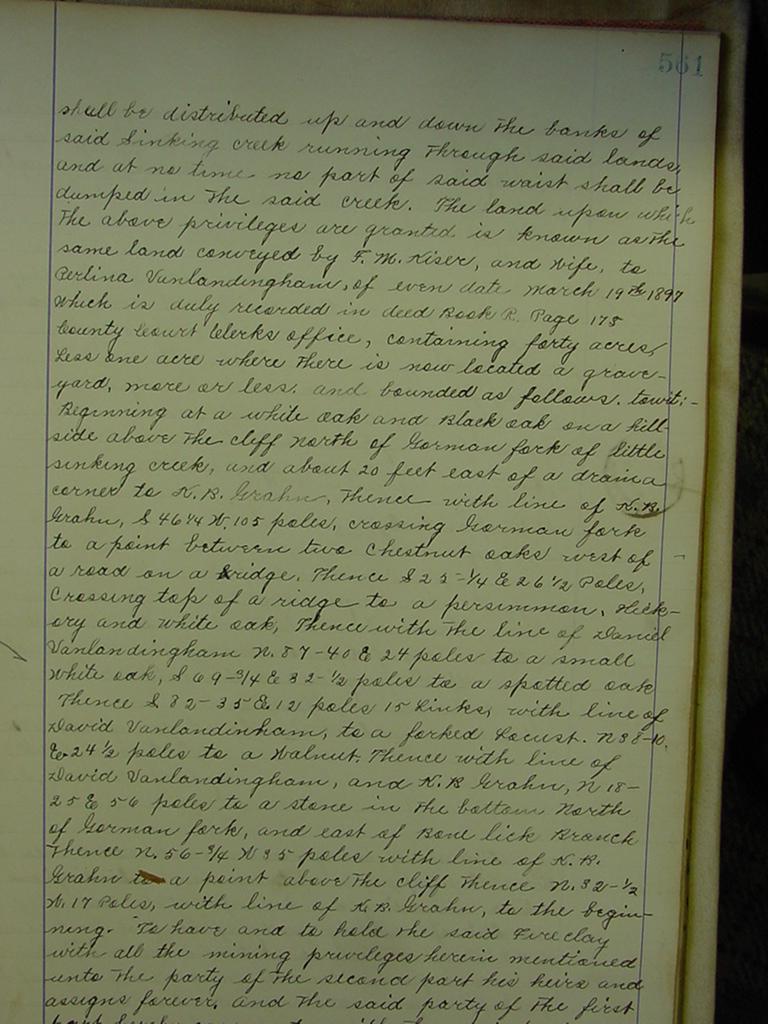 561
shall be distributed up and down The banks of
said Sinking creek running Through said lands,
and at no time no part of said waist shall be
dumped in The said creek. The land upon which
The above privileges are granted is known as The
same land conveyed by F. M. Kiser, and Wife, to
Perlina Vanlandingham, of even date March 19th 1897
Which is duly recorded in deed Book R. Page 175
County Court Clerks office, containing forty acres,
Less one acre where There is now located a grave-
yard, more or less. and bounded as follows. towit:-
Beginning at a white oak and Black oak on a hill
side above The cliff North of Gorman fork of little
sinking creek, and about 20 feet east of a drain a
corner to K. B. Grahn, Thence with line of K. B.
Grahn, S 46 1/4 W. 105 poles, crossing Gorman fork
to a point between two Chestnut oaks west of
a road on a ridge. Thence S 25-1/4 E 26 1/2 Poles,
Crossing top of a ridge to a persimmon, Hick-
ory and white oak, Thence with The line of Daniel
Vanlandingham N. 87-40 E 24 poles to a small
White oak, S 69-3/4 E 32-1/2 poles to a spotted oak
Thence S 82-35 E 12 poles 15 Links, with line of
David Vanlandinham, to a forked Locust. N 38-10.
E. 24 1/2 poles to a Walnut. Thence with line of
David Vanlandingham, and K. B Grahn, N 18-
25 E 56 poles to a stone in The bottom North
of Gorman fork, and east of Bone lick Branch
Thence N. 56-3/4 W 35 poles with line of K. B.
Grahn to a point above The cliff Thence N. 32-1/2
W. 17 Poles, with line of K B. Grahn, to the begin-
ning. To have and to hold the said Fire clay
with all the mining privileges herein mentioned
unto The party of The second part his heirs and
assigns forever. And The said party of The first